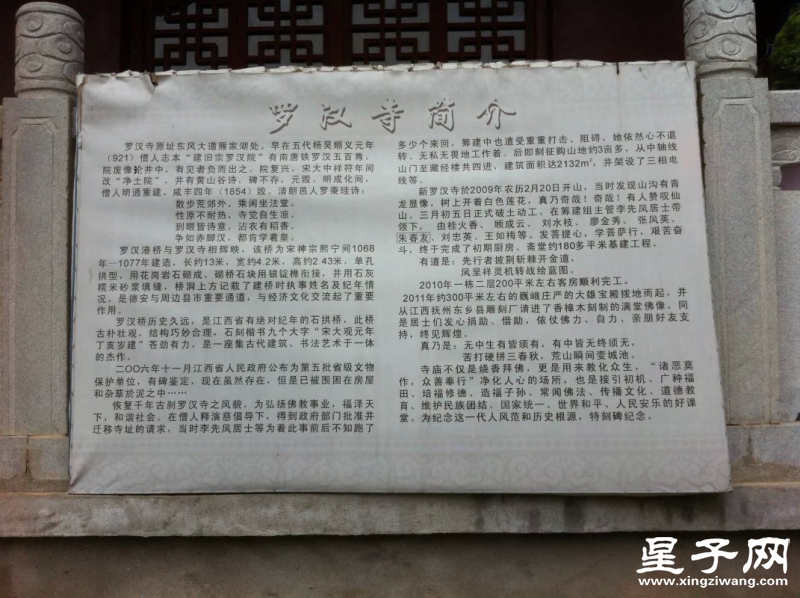 罗汉寺简介
罗汉寺原址东风大道雁家湖处。早在五代杨吴顺义元年
（921）僧人志本“建旧宗罗汉院”有南唐铁罗汉五百尊，
院废像沦井中，有见者负而出之。院复兴。宋大中祥符年间
改“净土院”，并有黄山谷诗，碑不存，元毁。明成化间，
僧人明通重建。咸丰四年（1854）毁。清朝邑人罗秉珪诗：
散步荒郊外，乘闲坐法堂。
性原不耐热，寺觉自生凉。
到眼皆诗意，沾衣有稻香。
争如赤脚汉，都肯学羲皇。
罗汉港桥与罗汉寺相辉映，该桥为宋神宗熙宁间1068
年—1077年建造，长约13米，宽约4.2米，高约2.43米，单孔
拱型，用花岗岩石砌成，砌桥石块用银锭榫衔接，并用石灰
糯米砂浆填缝，桥洞上方记载了建桥时执事姓名及纪年情
况。是德安与周边县市重要通道，与经济文化交流起了重要
作用。
罗汉桥历史久远，是江西省有绝对纪年的石拱桥，此桥
古朴壮观，结构巧妙合理，石刻楷书九个大字“宋大观元年
丁亥岁建”苍劲有力，是一座集古代建筑、书法艺术于一体
的杰作。
二〇〇六年十一月江西省人民政府公布为第五批省级文物
保护单位，有碑鉴定，现在虽然存在，但是已被围困在房屋
和杂草於泥之中……
恢复千年古刹罗汉寺之风貌，为弘扬佛教事业，福泽天
下，和谐社会。在僧人释演慈倡导下，得到政府部门批准并
迁移寺址的请求，当时李先凤居士等为着此事前后不知跑了
多少个来回，筹建中也遭受重重打击、阻碍，她依然心不退
转、无私无畏地工作着。后即刻征购山地约3亩多，从中轴线
山门至藏经楼共四进，建筑面积达2132m²，并架设了三相电
线等。
新罗汉寺於2009年农历2月20日开山，当时发现山沟有青
龙显像，树上开着白色莲花，真乃奇哉！奇哉！有人赞叹仙
山。三月初五日正式破土动工。在筹建组主管李先凤居士带
领下，由桂火香、顾成云、刘水枝、廖金秀、张凤英、
朱春友、刘忠英、王如梅等。发菩提心，学菩萨行，艰苦奋
斗，终于完成了初期厨房、斋堂约180多平米基建工程。
有道是：先行者披荆斩棘开金道，
凤呈祥灵机转战绘蓝图。
2010年一栋二层200平米左右客房顺利完工。
2011年约300平米左右的巍峨庄严的大雄宝殿拨地而起，并
从江西抚州东乡县雕刻厂请进了香樟木刻制的满堂佛像，同
是居士们发心捐助、借助，依仗佛力、自力、亲朋好友支
持，终见辉煌。
真乃是：无中生有皆须有，有中皆无终须无。
苦打硬拼三春秋，荒山瞬间变城池。
寺庙不仅是烧香拜佛，更是用来教化众生，“诸恶莫
作，众善奉行”净化人心的场所，也是接引初机、广种福
田、培福修德、造福子孙、常闻佛法、传播文化、道德教
育、维护民族团结、国家统一、世界和平、人民安乐的好课
堂。为纪念这一代人风范和历史根源，特刻碑纪念。
星子网
www.xingziwang.com